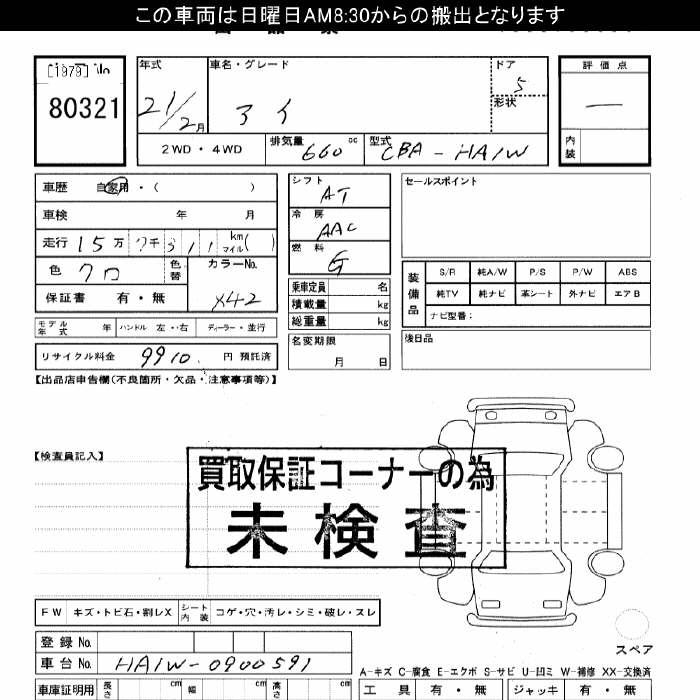 この車両は日曜日AM8:30からの搬出となります
[1979] No
80321
年式
21/2月
車名・グレード
アイ
ドア
5
形状
評価点
—
内装
2WD・4WD
排気量 660 cc
型式 CBA-HA1W
車歴 自家用・( )
車検 年 月
走行 15万7千311 km マイル( )
色 クロ
色替
カラーNo.
X42
保証書 有・無
モデル年式 年 ハンドル 左・右 ディーラー・並行
リサイクル料金 9910 円 預託済
シフト
AT
冷房
AAC
燃料
G
乗車定員 名
積載量 kg
総重量 kg
名変期限
月 日
セールスポイント
装備品
S/R 純A/W P/S P/W ABS
純TV 純ナビ 革シート 外ナビ エアB
ナビ型番:
後日品
【出品店申告欄(不良箇所・欠品・注意事項等)】
【検査員記入】
買取保証コーナーの為
未検査
FW キズ・トビ石・割レX シート内装 コゲ・穴・汚レ・シミ・破レ・スレ
登録No.
車台No. HA1W-0900591
スペア
A-キズ C-腐食 E-エクボ S-サビ U-凹ミ W-補修 XX-交換済
車庫証明用 長さ cm 幅 cm 高さ cm
工具 有・無 ジャッキ 有・無